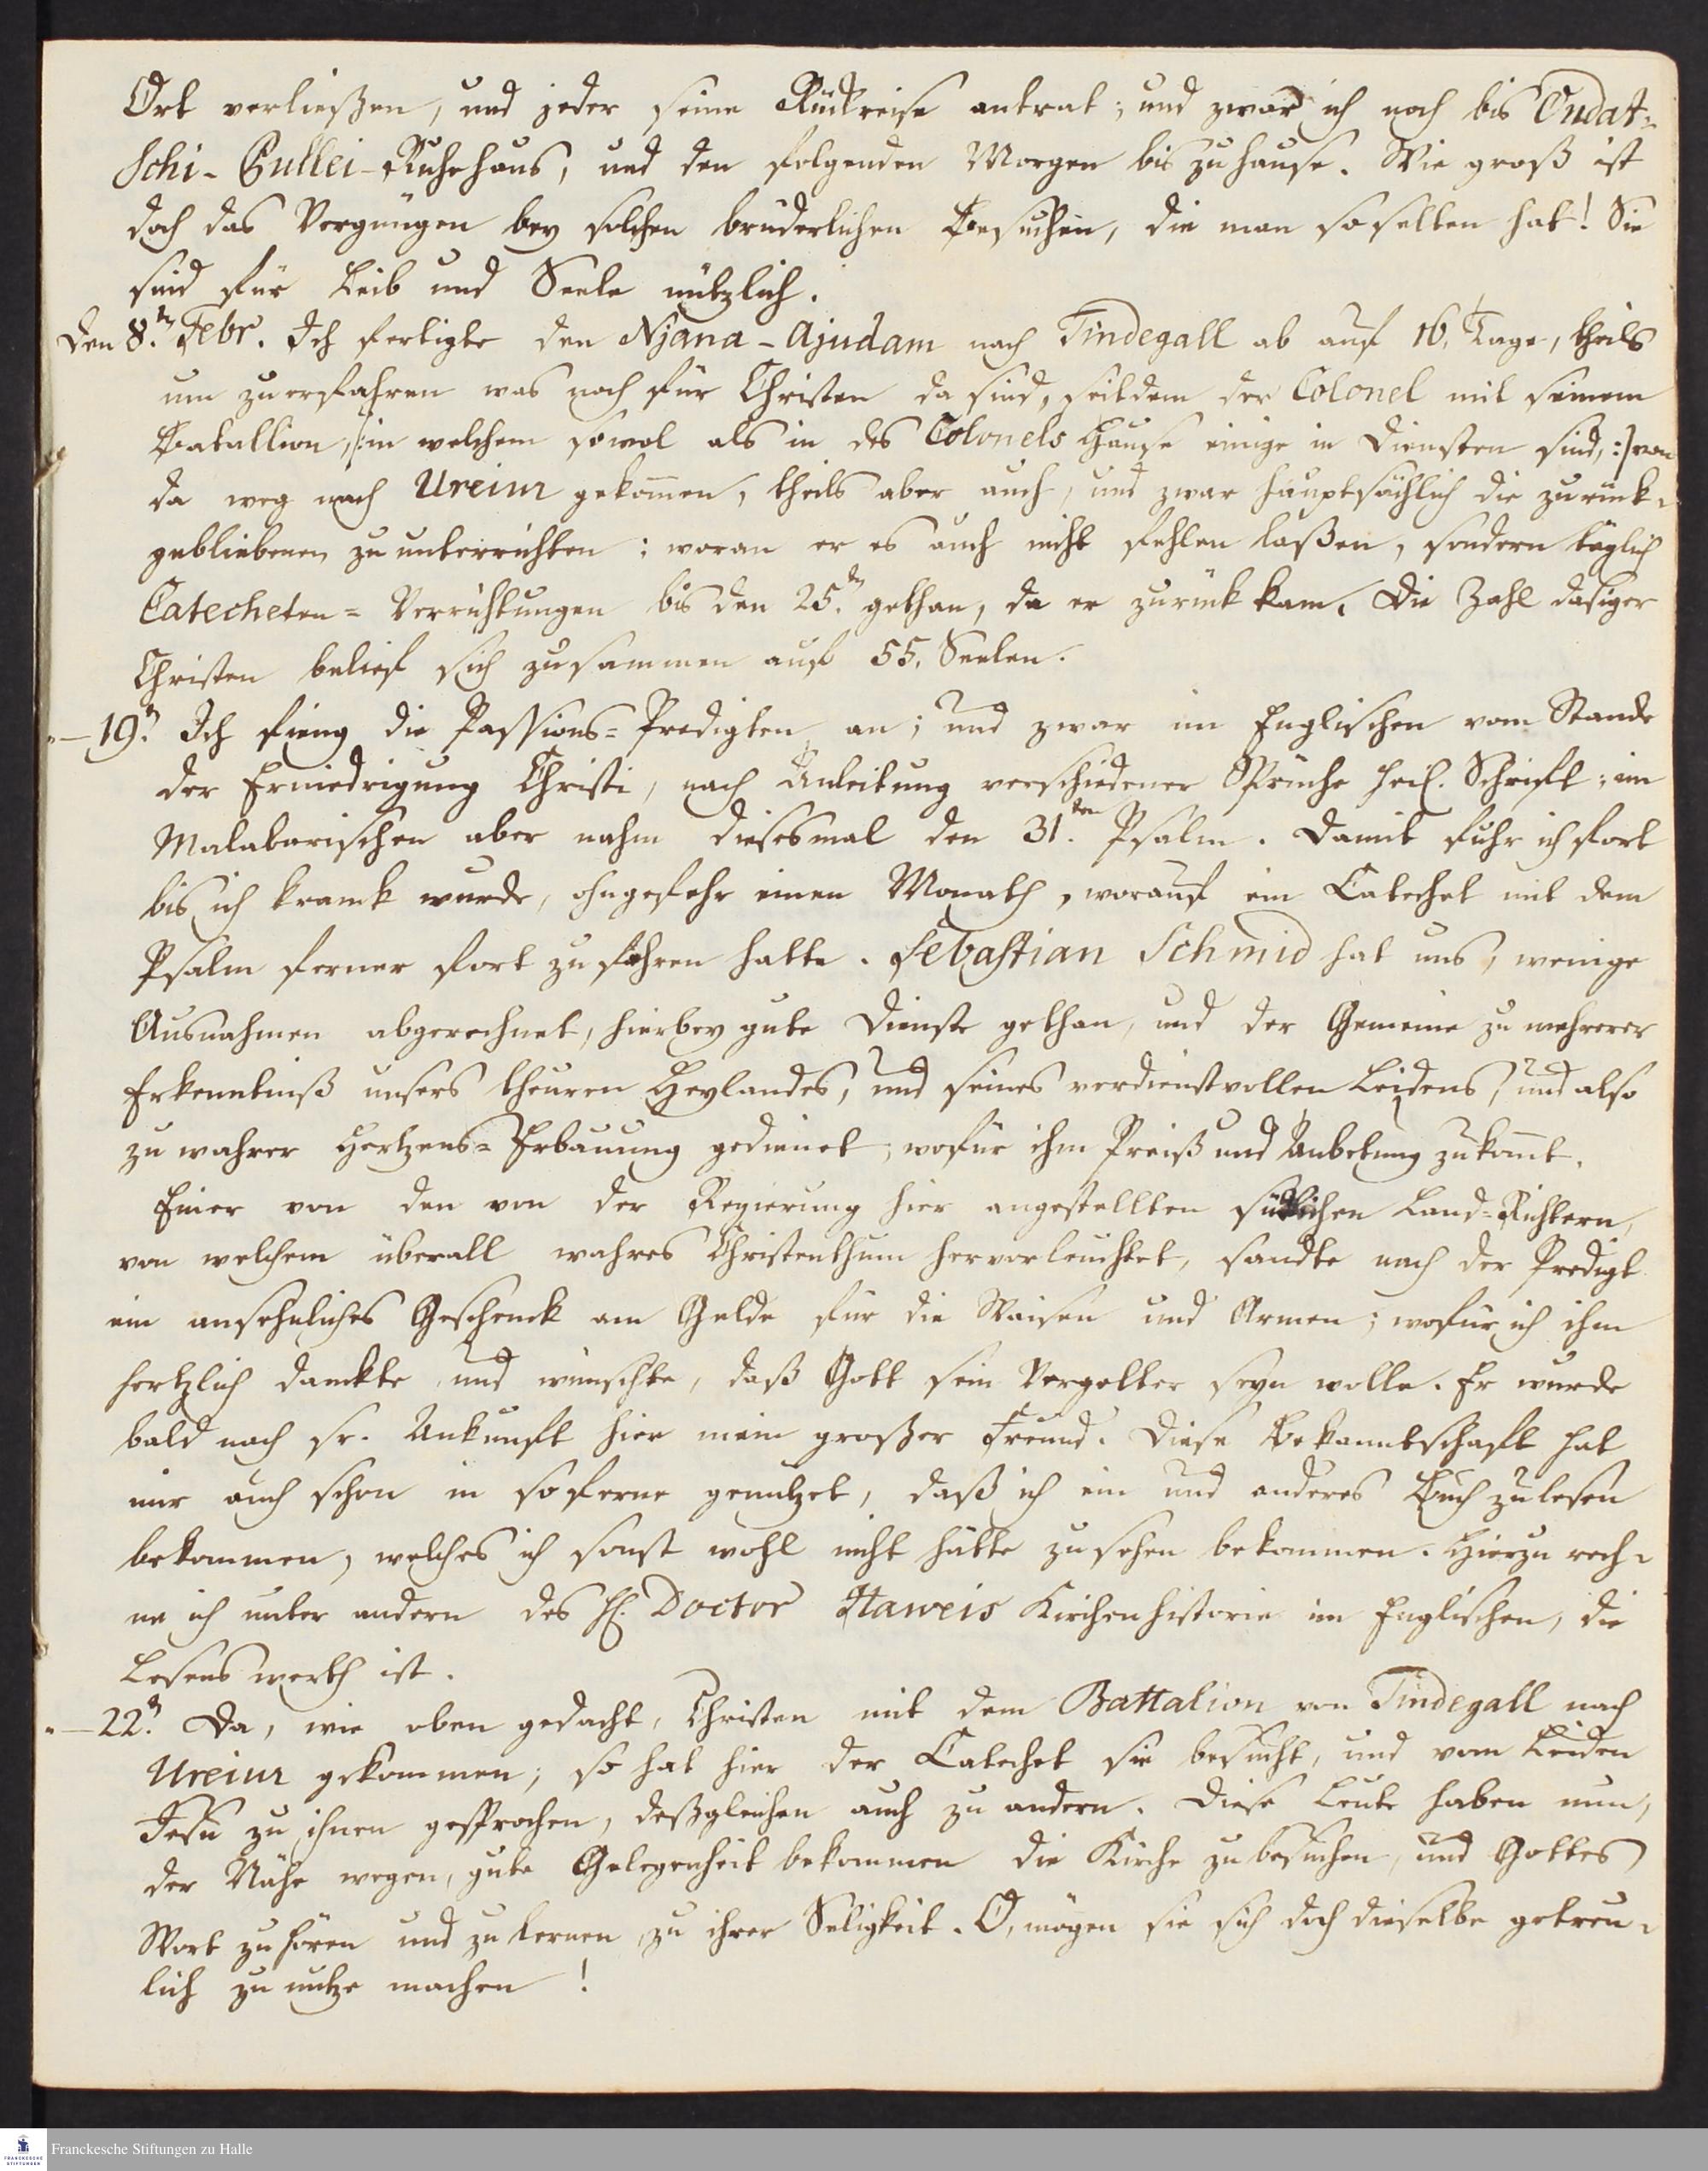 Ort verließen, und jeder seine Rückreise antrat; und zwar ich noch bis Ondat-
Schi-Pullei-Ruhehaus, und den folgenden Morgen bis zu hause. Wie groß ist
doch das Vergnügen bey solchen brüderlichen Besuchen, die man so selten hat! Sie
sind für Leib und Seele nützlich.
Den 8.ten Febr. Ich fertigte den Njana-Ajudam nach Tindegall ab auf 16. Tage, theils
um zu erfahren was noch für Christen da sind, seitdem der Colonel mit seinem
Batallion, /:in welchem sowol als in des Colonels Hause einige in Diensten sind,:/ von
da weg nach Ureiur gekom̄en, theils aber auch, und zwar hauptsächlich die zurück-
gebliebenen zu unterrichten; woran er es auch nicht fehlen laßen, sondern täglich
Catecheten-Verrichtungen bis den 25.ten gethan, da er zurück kam. Die Zahl dasiger
Christen belief sich zusammen auf 55. Seelen.
"— 19.ten Ich fieng die Passions-Predigten an; und zwar im Englischen vom Stande
der Erniedrigung Christi, nach Anleitung verschiedener Sprüche heil. Schrift; im
Malabarischen aber nahm diesesmal den 31.ten Psalm. Damit fuhr ich fort
bis ich kranck wurde, ohngefehr einen Monath, worauf ein Catechet mit dem
Psalm ferner fort zu fahren hatte. Sebastian Schmid hat uns, wenige
Ausnahmen abgerechnet, hierbey gute Dienste gethan, und der Gemeine zu mehrerer
Erkenntniß unsers theuren Heylandes, und seines verdienstvollen Leidens, und also
zu wahrer Hertzens-Erbauung gedienet; wofür ihm Preiß und Anbetung zukom̄t.
Einer von den von der Regierung hier angestellten südlichen Land-Richtern,
von welchem überall wahres Christenthum hervorleuchtet, sandte nach der Predigt
ein ansehnliches Geschenck am Gelde für die Waisen und Armen; wofür ich ihm
hertzlich danckte und wünschte, daß Gott sein Vergelter seyn wolle. Er wurde
bald nach sr. Ankunft hier mein großer Freund. Diese Bekanntschaft hat
mir auch schon in soferne genutzet, daß ich ein und anderes Buch zu lesen
bekommen, welches ich sonst wohl nicht hätte zu sehen bekommen. Hierzu rech-
ne ich unter andern des H. Doctor Haweis Kirchenhistorie im Englischen, die
Lesens werth ist.
"— 22.ten Da, wie oben gedacht, Christen mit dem Battalion von Tindegall nach
Ureiur gekommen; so hat hier der Catechet sie besucht, und vom Leiden
Jesu zu ihnen gesprochen, deßgleichen auch zu andern. Diese Leute haben nun,
der Nähe wegen, gute Gelegenheit bekommen die Kirche zu besuchen, und Gottes
Wort zu hören und zu lernen, zu ihrer Seligkeit. O, mögen sie sich doch dieselbe getreu-
lich zu nutze machen!
Franckesche Stiftungen zu Halle
FRANCKESCHE STIFTUNGEN